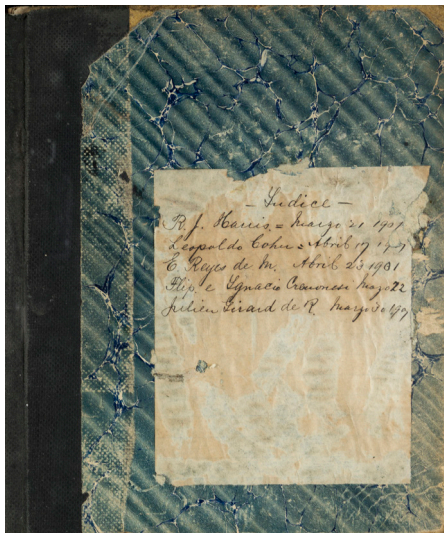 - Indice -
R. J. Harris = Marzo 21 1901
Leopoldo Cohn = Abril 17 1901
E. Reyes de M. Abril 23 1901
e Ignacio Mayo 22
Julien Girard de R Marzo 30